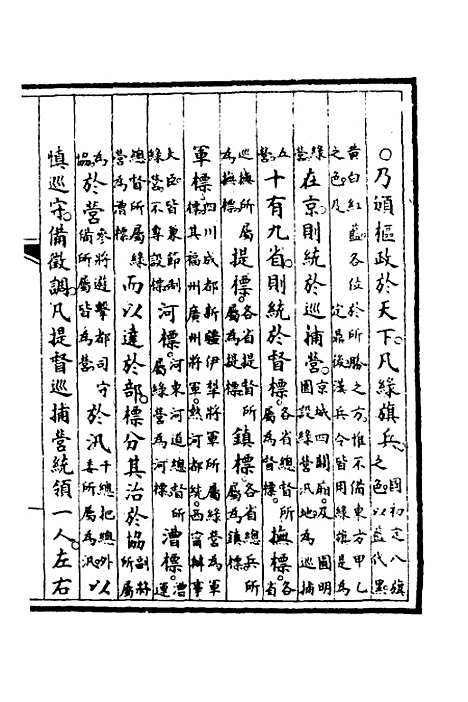 ○乃頒樞政於天下。凡綠旗兵。國初定八旗之色以藍代黑
黃白紅藍各位於所勝之方惟不備東方甲乙之色及定鼎後漢兵令皆用綠旗是為
綠營在京則統於巡捕營。京城四關廂及圓明園設綠營汛地為巡捕
五營。十有九省則統於督標。各省總督所屬為督標撫標。各省
巡撫所屬為撫標提標。各省提督所屬為提標鎮標。各省總兵所屬為鎮標
軍標。四川成都新疆伊犂將軍所屬綠營為軍標其福州廣州將軍熱河都統西甯辦事
大臣皆兼節制綠營不專設標河標。河東河道總督所屬綠營為河標漕標。漕運
總督所屬綠營為漕標而以達於部。標分其治於協副將所屬
為協。於營參將遊擊都司守備所屬皆為營。於汛千總把總外委所屬為汛。以
慎巡守。備徵調。凡提督巡捕營統領一人。左右